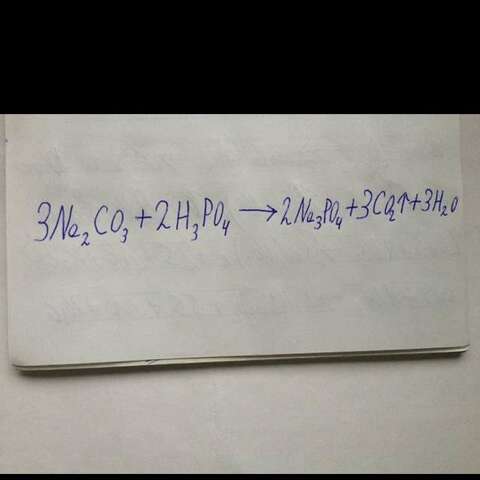 3Na₂CO₃+2H₃PO₄→2Na₃PO₄+3CO₂↑+3H₂O